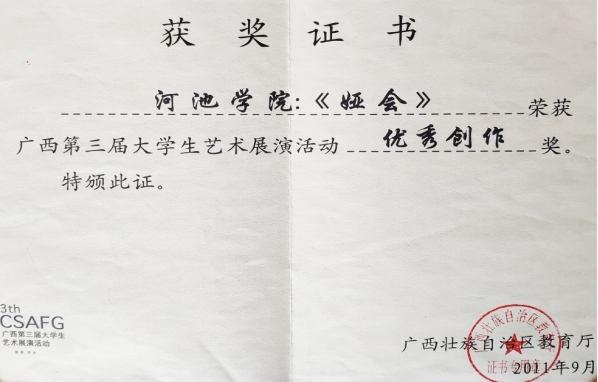 获奖证书
河池学院:《娅会》荣获
广西第三届大学生艺术展演活动优秀创作奖。
特颁此证。
3th
CSAFG
广西第三届大学生
艺术展演活动
广西壮族自治区教育厅
证书专用章
广西壮族自治区教育厅
2011年9月